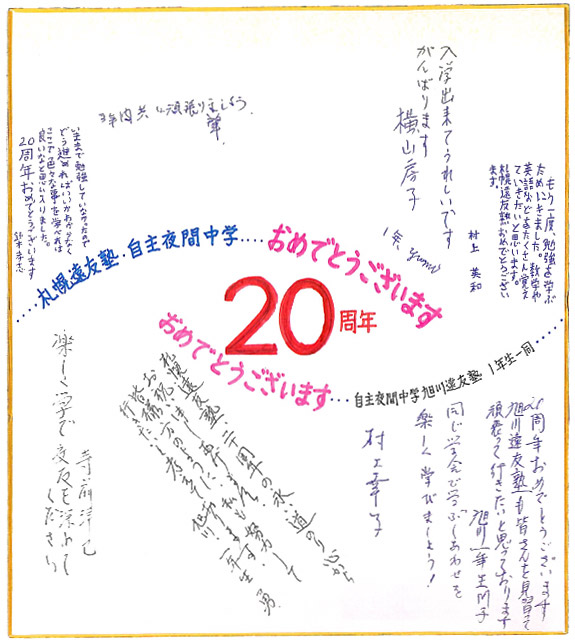 入学出来てうれしいです
がんばります
横山房子
3年間共に頑張りましょう
いままで勉強していなかったので
どう進めればいいかわからなく
ここで色々な事を学べれば
良いなと思い入りました。
20周年おめでとうございます
もう一度、勉強を学ぶ
ために来ました。数学や
英語などをたくさん覚え
ていきたいと思います。
札幌遠友塾おめでとうござい
ます。
村上 英和
1年
····札幌遠友塾·自主夜間中学····
おめでとうございます
20周年
おめでとうございます
····自主夜間中学旭川遠友塾 1年生一同····
楽しく学んで交友を深めて
ください
札幌遠友塾、二十周年の永い道のり心から
お祝い申し上げます。
皆様方のように私も努力して
行きたいと考えています
旭川 一年生 勇
20周年おめでとうございます
旭川遠友塾も皆さんを見習って
頑張って行きたいと思っております
旭川一年生
同じ学舎で学ぶしあわせを
楽しく学びましょう!
村上幸子